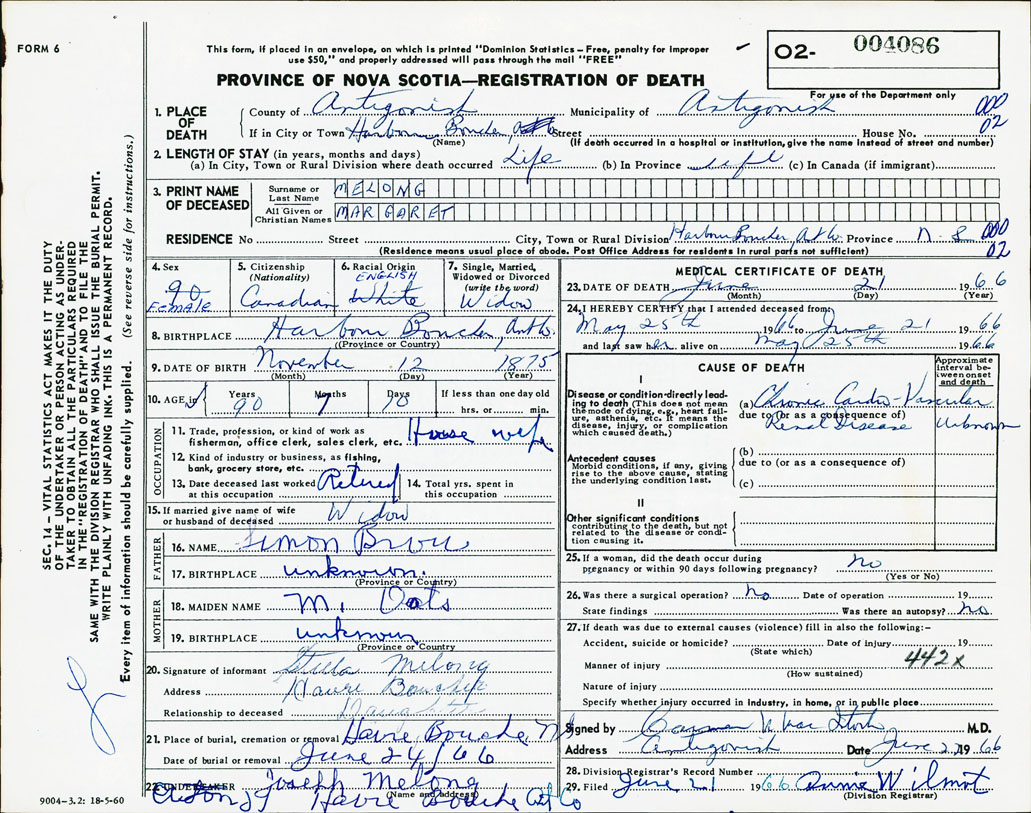 FORM 6
This form, if placed in an envelope, on which is printed "Dominion Statistics – Free, penalty for improper
use $50," and properly addressed will pass through the mail "FREE"
02- 004086
For use of the Department only
PROVINCE OF NOVA SCOTIA—REGISTRATION OF DEATH
1. PLACE OF DEATH
County of Antigonish Municipality of Antigonish 000
If in City or Town Harbour Boucher, Street House No. 02
(Name) (If death occurred in a hospital or institution, give the name instead of street and number)
2. LENGTH OF STAY (in years, months and days)
(a) In City, Town or Rural Division where death occurred Life (b) In Province Life (c) In Canada (if immigrant)
3. PRINT NAME OF DECEASED
Surname or Last Name MELONG
All Given or Christian Names MARGARET
RESIDENCE No Street City, Town or Rural Division Harbour Boucher, Ant Co. Province N. S 000
(Residence means usual place of abode. Post Office Address for residents in rural parts not sufficient) 02
4. Sex
Female
5. Citizenship (Nationality)
Canadian
6. Racial Origin
ENGLISH
White
7. Single, Married, Widowed or Divorced (write the word)
Widow
8. BIRTHPLACE Harbour Boucher, Ant Co.
(Province or County)
9. DATE OF BIRTH November 12 1875
(Month) (Day) (Year)
10. AGE Years Months Days If less than one day old
90 7 10 hrs. or min.
OCCUPATION
11. Trade, profession, or kind of work as fisherman, office clerk, sales clerk, etc. House wife
12. Kind of industry or business, as fishing, bank, grocery store, etc.
13. Date deceased last worked at this occupation Retired
14. Total yrs. spent in this occupation
15. If married give name of wife or husband of deceased Widow
FATHER
16. NAME Simon
17. BIRTHPLACE unknown.
(Province or Country)
MOTHER
18. MAIDEN NAME M. Oats
19. BIRTHPLACE unknown
(Province or Country
20. Signature of informant Stella Melong
Address Havre Bouche
Relationship to deceased Daughter
21. Place of burial, cremation or removal Havre Bouche N S
Date of burial or removal June 24/66
22. UNDERTAKER Joseph Melong
(Name and address)
Havre Bouche Ant Co
9004–3.2: 18-5-60
MEDICAL CERTIFICATE OF DEATH
23. DATE OF DEATH June 21 1966
(Month) (Day) (Year)
24. I HEREBY CERTIFY that I attended deceased from:
May 25th 1966 to June 21 1966
and last saw her alive on May 25th 1966
CAUSE OF DEATH
Approximate interval between onset and death
I
Disease or condition directly leading to death (This does not mean the mode of dying, e.g., heart failure, asthenia, etc. It means the disease, injury, or complication which caused death.)
(a) Chronic Cardio-Vascular
due to (or as a consequence of)
Renal Disease Unknown
Antecedent causes
Morbid conditions, if any, giving rise to the above cause, stating the underlying condition last.
(b)
due to (or as a consequence of)
(c)
II
Other significant conditions
contributing to the death, but not related to the disease or condition causing it.
25. If a woman, did the death occur during pregnancy or within 90 days following pregnancy? no
(Yes or No)
26. Was there a surgical operation? no Date of operation 19
State findings Was there an autopsy? no
27. If death was due to external causes (violence) fill in also the following:–
Accident, suicide or homicide? Date of injury 19
(State which)
442x
Manner of injury
(How sustained)
Nature of injury
Specify whether injury occurred in industry, in home, or in public place
Signed by M.D.
Address Antigonish Date June 1966
28. Division Registrar's Record Number
29. Filed June 21 1966 Annie Wilmot
(Division Registrar)
SEC. 14 – VITAL STATISTICS ACT MAKES IT THE DUTY
OF THE UNDERTAKER OR PERSON ACTING AS UNDER-
TAKER TO OBTAIN ALL THE PARTICULARS REQUIRED
IN THE "REGISTRATION OF DEATH" AND TO FILE THE
SAME WITH THE DIVISION REGISTRAR WHO SHALL ISSUE THE BURIAL PERMIT.
WRITE PLAINLY WITH UNFADING INK. THIS IS A PERMANENT RECORD.
Every item of information should be carefully supplied. (See reverse side for instructions.)